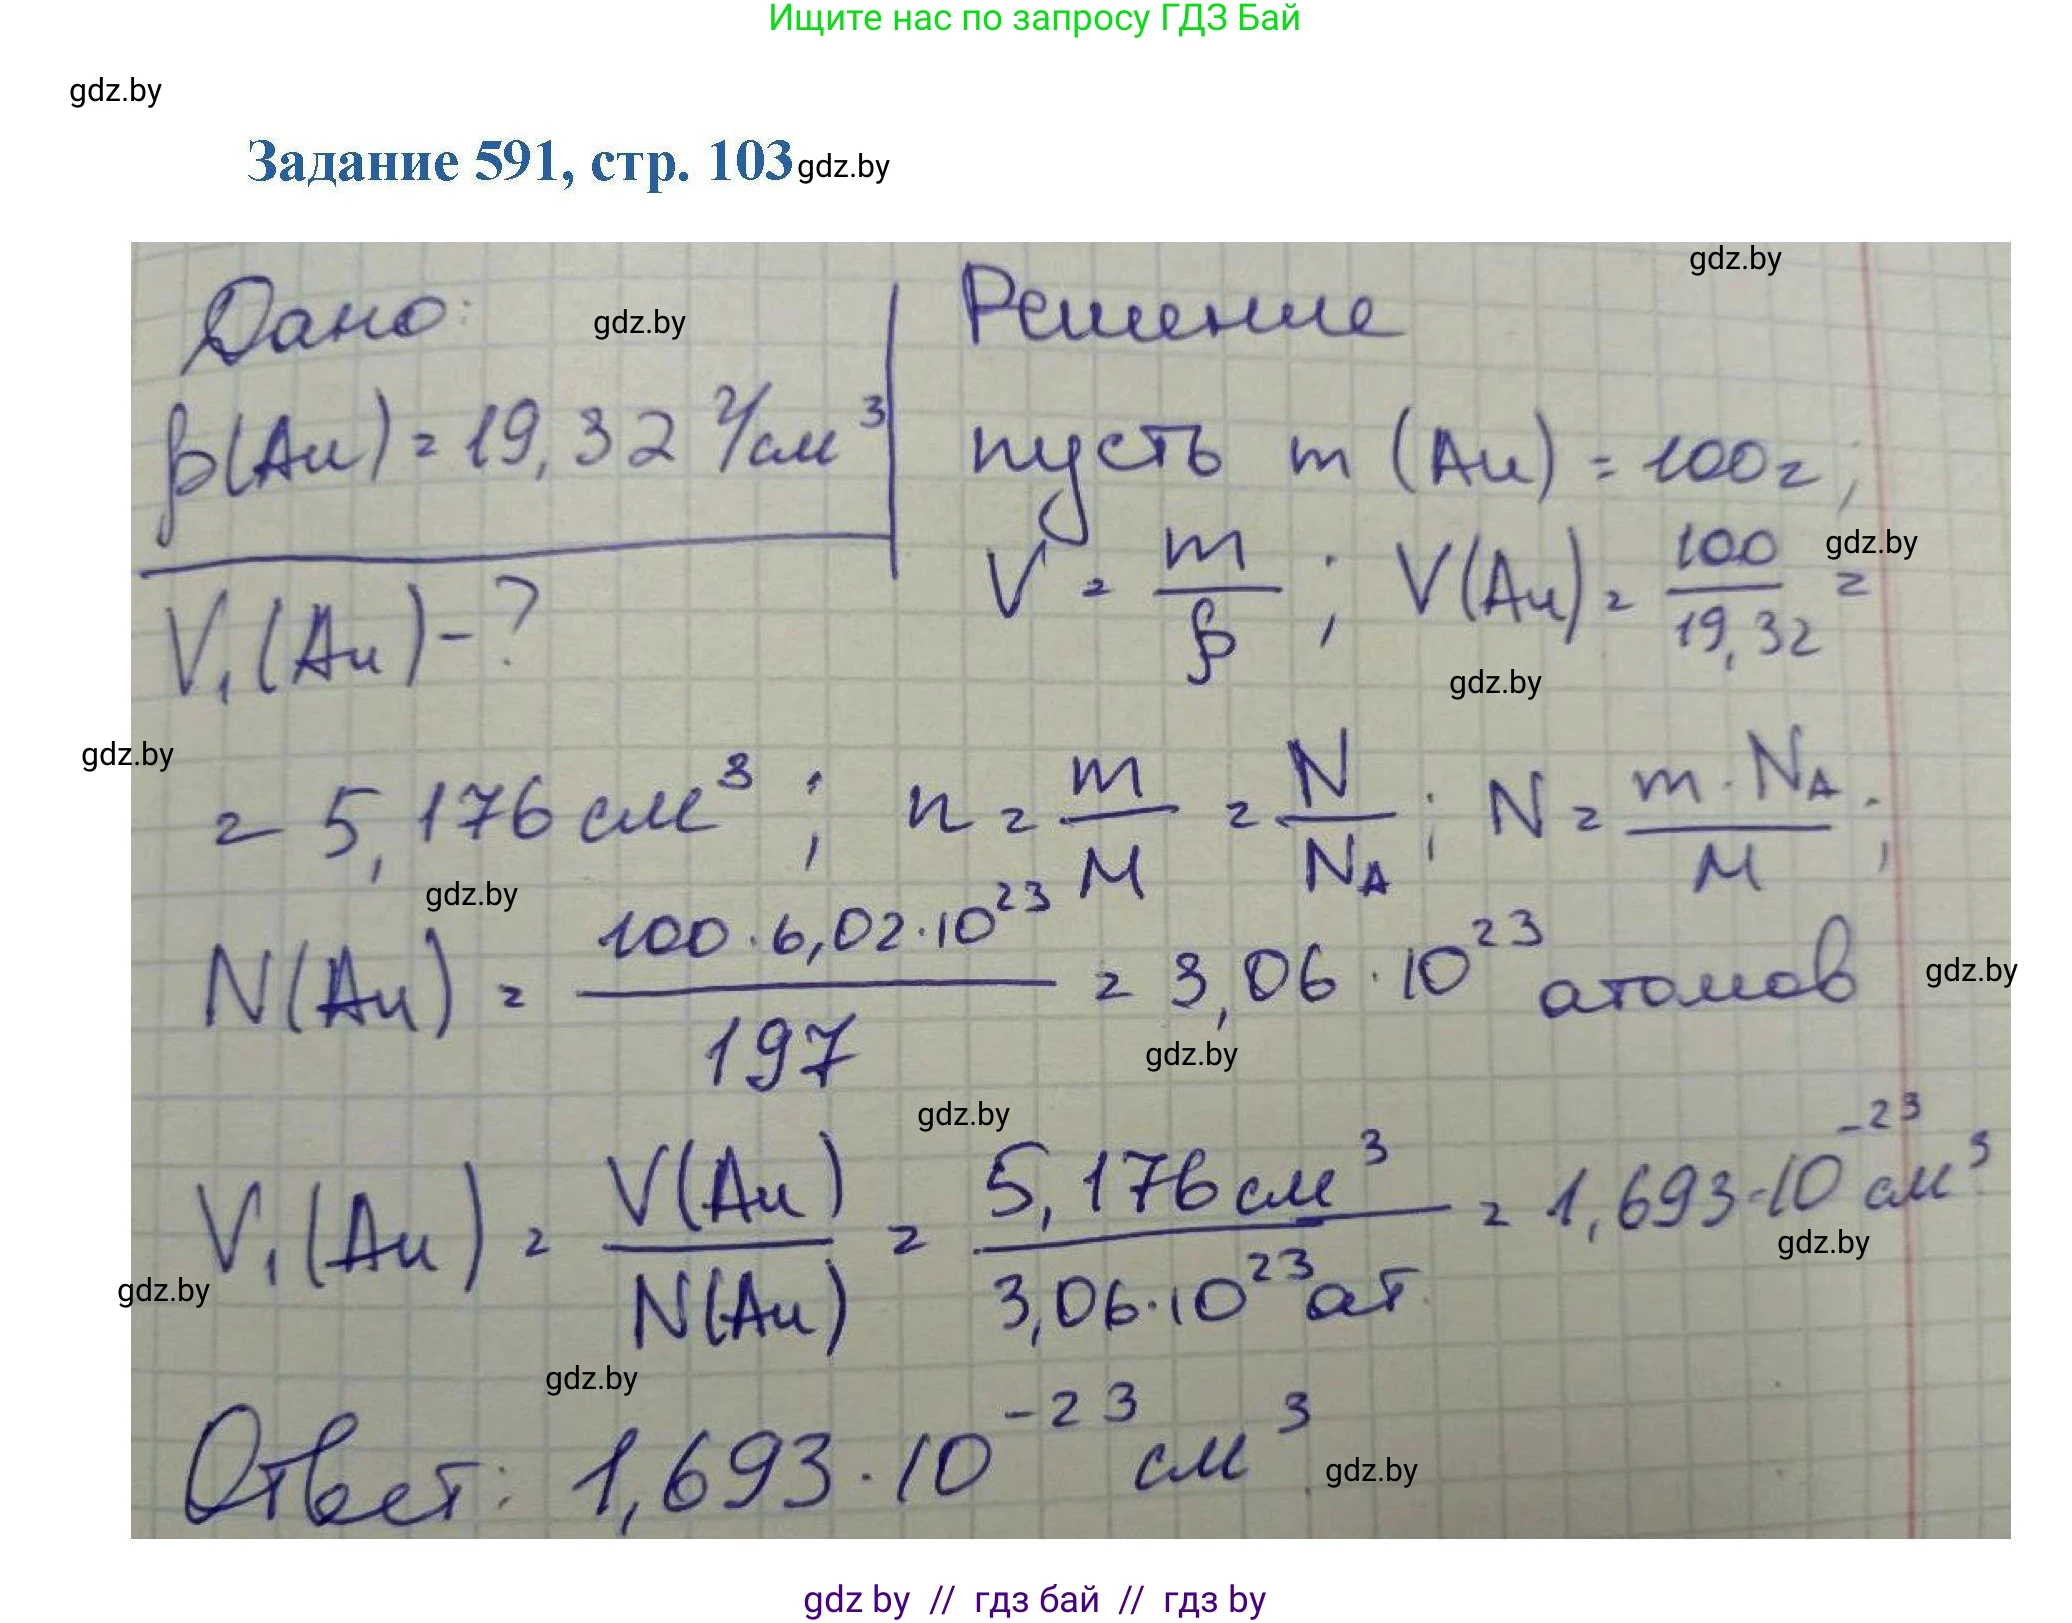 Ищите нас по запросу ГДЗ Бай
gdz.by
Задание 591, стр. 103 gdz.by
gdz.by
Дано: gdz.by Решение
ρ(Au) = 19,32 г/см³ пусть m (Au) = 100г;
V₁(Au) - ? V = m/ρ; V(Au) = 100/19,32 = gdz.by
gdz.by
gdz.by
= 5,176 см³; n = m/M = N/N_A; N = m · N_A/M;
gdz.by
N(Au) = 100 · 6,02 · 10²³/197 = 3,06 · 10²³ атомов gdz.by
gdz.by
gdz.by
V₁(Au) = V(Au)/N(Au) = 5,176 см³/3,06 · 10²³ ат. = 1,693 · 10⁻²³ см³
gdz.by
gdz.by
gdz.by
Ответ: 1,693 · 10⁻²³ см³. gdz.by
gdz by // гдз бай // гдз by